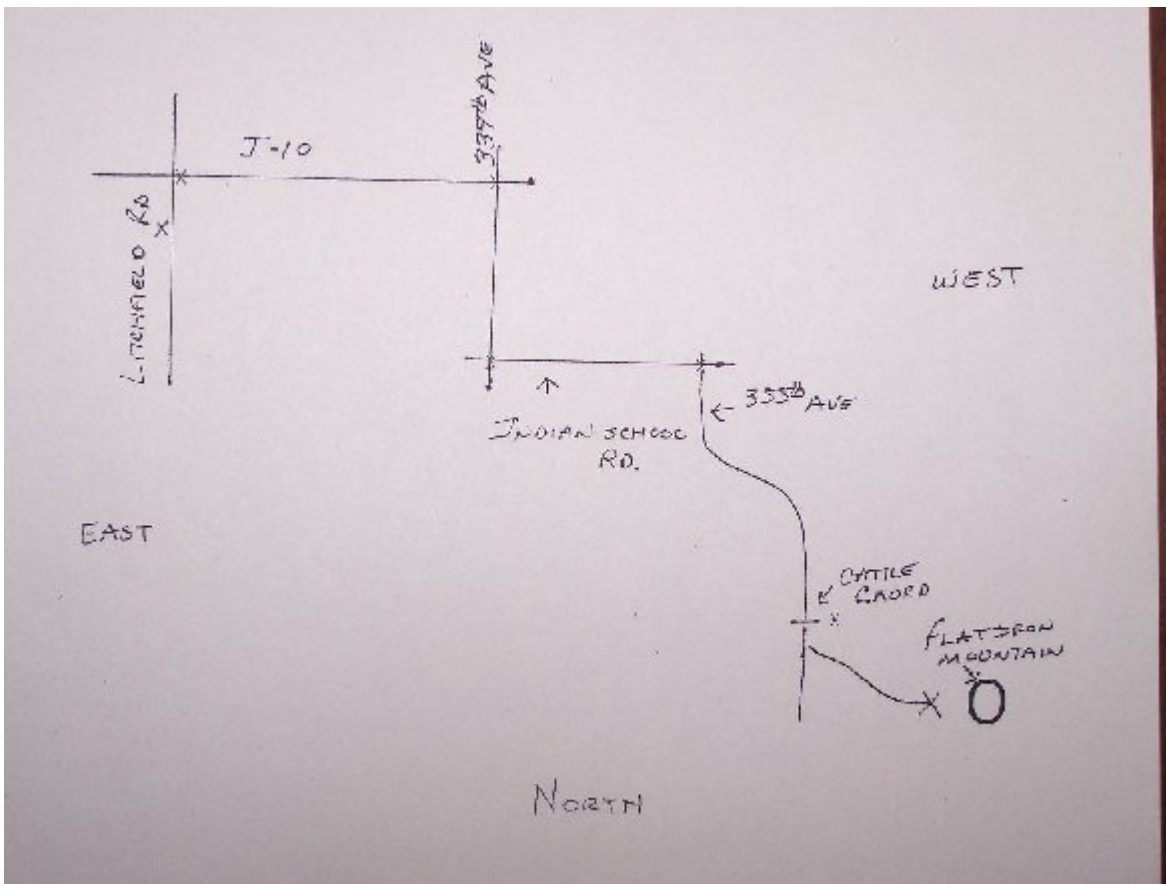 337th AVE
I-10
LITCHFIELD RD
X
WEST
355th AVE
INDIAN SCHOOL
RD.
EAST
CATTLE
GAURD
x
FLATIRON
MOUNTAIN
X
NORTH